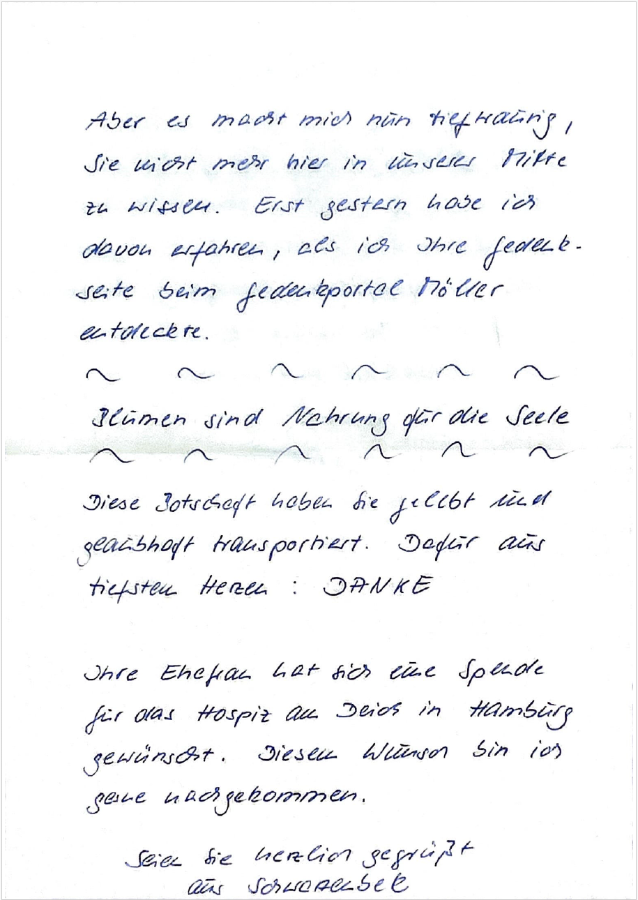 Aber es macht mich nun tieftraurig,
Sie nicht mehr hier in unserer Mitte
zu wissen. Erst gestern habe ich
davon erfahren, als ich Ihre Gedenk-
seite beim Gedenkportal Möller
entdeckte.
~ ~ ~ ~ ~ ~
Blumen sind Nahrung für die Seele
~ ~ ~ ~ ~ ~
Diese Botschaft haben Sie gelebt und
glaubhaft transportiert. Dafür aus
tiefsten Herzen : DANKE
Ihre Ehefrau hat sich eine Spende
für das Hospiz am Deich in Hamburg
gewünscht. Diesem Wunsch bin ich
gerne nachgekommen.
Seien Sie herzlich gegrüßt
aus Schwarzenbek